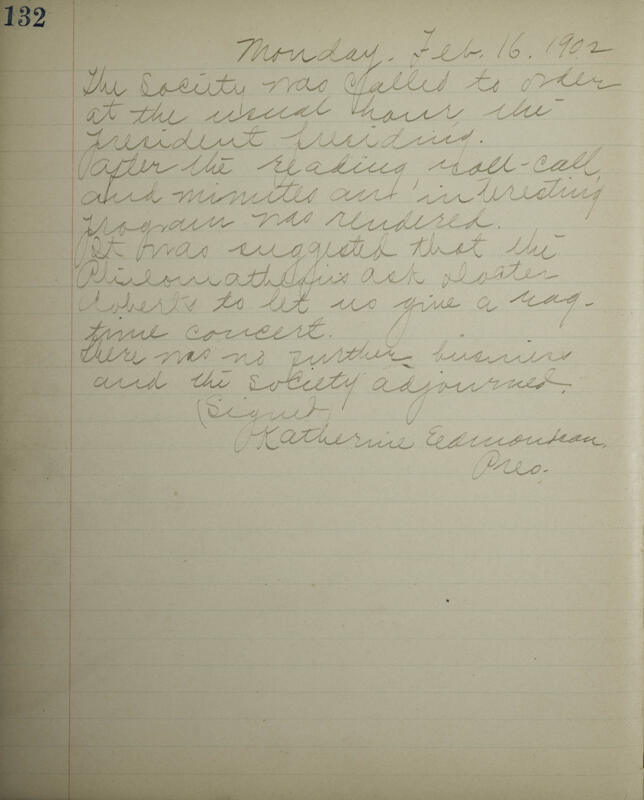 132
Monday. Feb. 16. 1902
The Society was called to order
at the usual hour, the
President presiding.
After the reading, roll-call,
and minutes an interesting
program was rendered.
It was suggested that the
Philomatheans ask
Roberts to let us give a rag-
time concert.
There was no further business
and the Society adjourned.
(Signed)
Katherine Edmondson.
Pres.